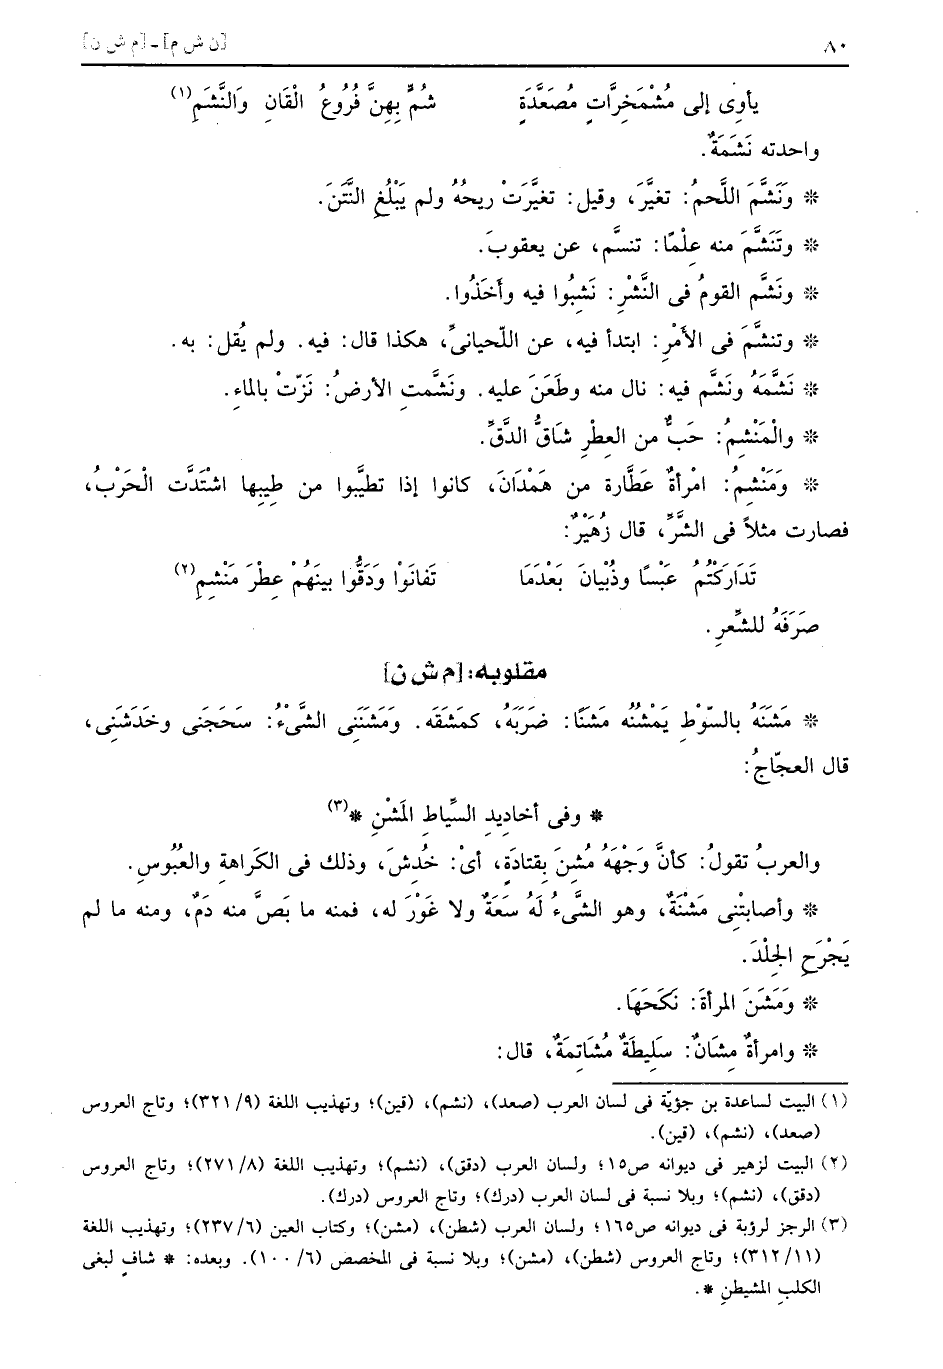 ٨٠ [ن ش م] ـ [م ش ن]
يأوى إلى مُشْمَخِرَّاتٍ مُصَعَّدَةٍ شُمٌّ بِهِنَّ فُرُوعُ الْقَانِ وَالنَّشَمِ(١)
واحدته نَشَمَةٌ.
* وَنَشَّمَ اللَّحمُ: تغيَّرَ، وقيل: تغيَّرَتْ ريحُهُ ولم يَبْلُغِ النَّتَنَ.
* وتَنَشَّمَ منه عِلْمًا: تنسَّم، عن يعقوبَ.
* ونَشَّم القومُ فى النَّشْرِ: نَشِبُوا فيه وأخَذُوا.
* وتنشَّمَ فى الأَمْرِ: ابتدأ فيه، عن اللّحيانىِّ، هكذا قال: فيه. ولم يُقل: به.
* نَشَّمَهُ ونَشَّم فيه: نال منه وطَعَنَ عليه. ونَشَّمتِ الأرضُ: نَزّتْ بالماءِ.
* والْمَنْشِمُ: حَبٌّ من العِطْرِ شَاقُّ الدَّقِّ.
* وَمَنْشِمُ: امْرأةٌ عَطَّارة من هَمْدَانَ، كانوا إذا تطيَّبوا من طِيبِها اشْتَدَّت الْحَرْبُ،
فصارت مثلاً فى الشَّرِّ، قال زُهَيْرٌ:
تَدَارَكْتُمُ عَبْسًا وذُبْيانَ بَعْدَمَا تَفانَوْا ودَقُّوا بينَهُمْ عِطْرَ مَنْشِمِ(٢)
صَرَفَهُ للشِّعرِ.
مقلوبه: [م ش ن]
* مَشَنَهُ بالسّوْطِ يَمْشُنُه مَشنًا: ضرَبَهُ، كمَشَقَه. ومَشَنَنِى الشَّىْءُ: سَحَجَنِى وخَدَشَنِى،
قال العجّاجُ:
* وفى أخاديدِ السِّياطِ المَشْنِ *(٣)
والعربُ تقولُ: كأنَّ وَجْهَهُ مُشنَ بِقتادَةٍ، أىْ: خُدِشَ، وذلك فى الكَراهة والعُبُوسِ.
* وأصابتْنِى مَشْنَةٌ، وهو الشَّىءُ لَهُ سَعَةٌ ولا غَوْرَ له، فمنه ما بَصَّ منه دَمٌ، ومنه ما لم
يَجْرَحِ الجِلْدَ.
* ومَشَنَ المرأةَ: نَكَحَهَا.
* وامرأةٌ مِشَانٌ: سَلِيطَةٌ مُشَاتِمَةٌ، قال:
(١) البيت لساعدة بن جؤيّة فى لسان العرب (صعد)، (نشم)، (قين)؛ وتهذيب اللغة (٩/ ٣٢١)؛ وتاج العروس
(صعد)، (نشم)، (قين).
(٢) البيت لزهير فى ديوانه ص١٥؛ ولسان العرب (دقق)، (نشم)؛ وتهذيب اللغة (٨/ ٢٧١)؛ وتاج العروس
(دقق)، (نشم)؛ وبلا نسبة فى لسان العرب (درك)؛ وتاج العروس (درك).
(٣) الرجز لرؤبة فى ديوانه ص١٦٥؛ ولسان العرب (شطن)، (مشن)؛ وكتاب العين (٦/ ٢٣٧)؛ وتهذيب اللغة
(١١/ ٣١٢)؛ وتاج العروس (شطن)، (مشن)؛ وبلا نسبة فى المخصص (٦/ ١٠٠). وبعده: * شافٍ لبغى
الكلبِ المشيطنِ *.